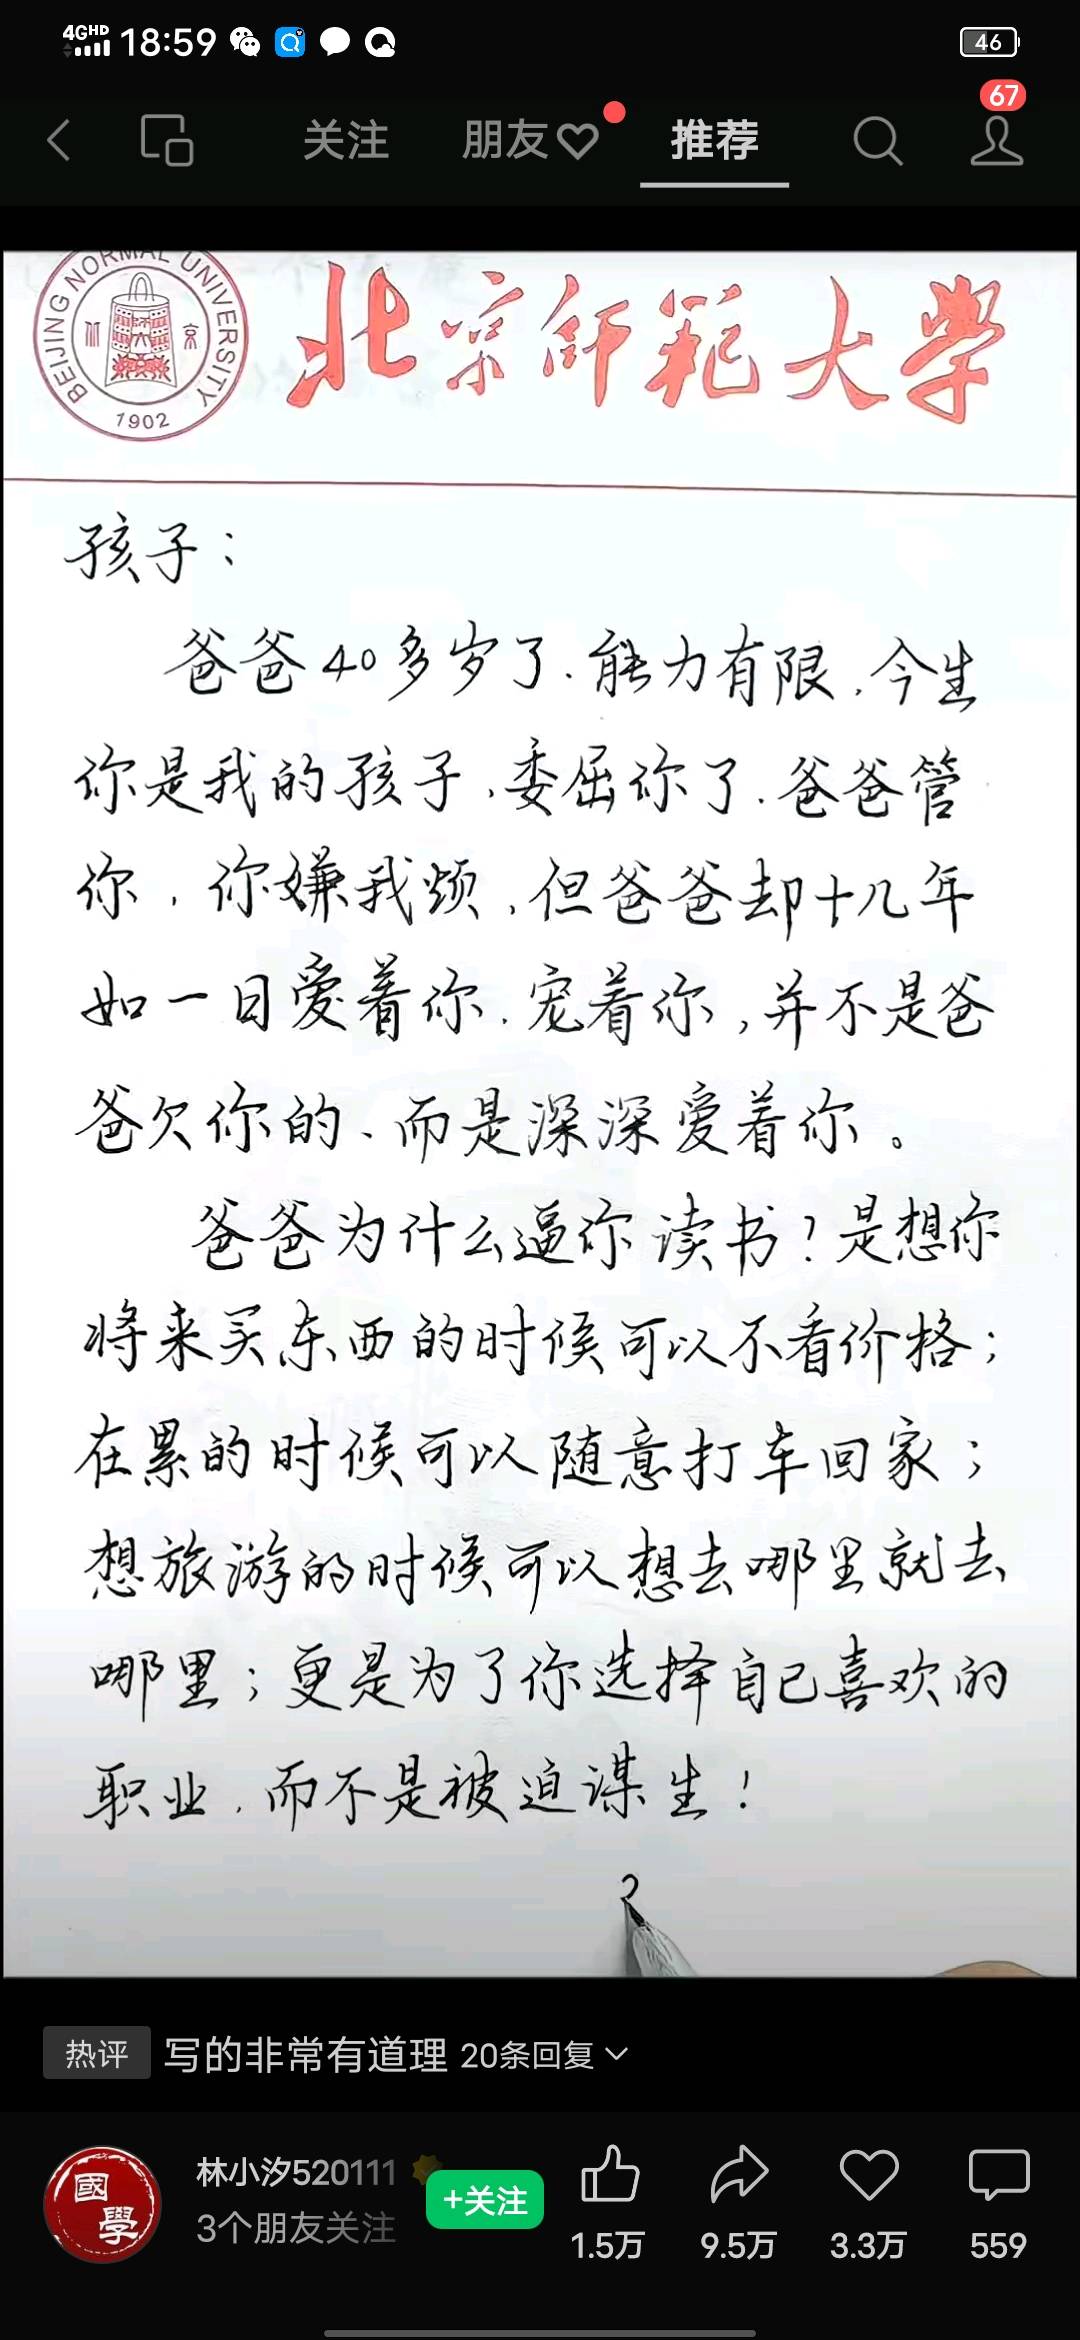 4GHD 18:59 46
67
关注 朋友 推荐
BEIJING NORMAL UNIVERSITY
京
1902
北京师范大学
孩子：
爸爸40多岁了.能力有限,今生
你是我的孩子,委屈你了.爸爸管
你,你嫌我烦,但爸爸却十几年
如一日爱着你.宠着你,并不是爸
爸欠你的、而是深深爱着你。
爸爸为什么逼你读书?是想你
将来买东西的时候可以不看价格;
在累的时候可以随意打车回家;
想旅游的时候可以想去哪里就去
哪里;更是为了你选择自己喜欢的
职业,而不是被迫谋生!
热评 写的非常有道理 20条回复
國學
林小汐520111
3个朋友关注
+关注
1.5万 9.5万 3.3万 559